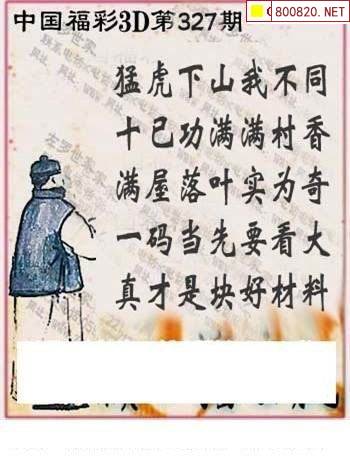 中国福彩3D第327期
800820.NET
猛虎下山我不同
十已功满满村香
满屋落叶实为奇
一码当先要看大
真才是块好材料